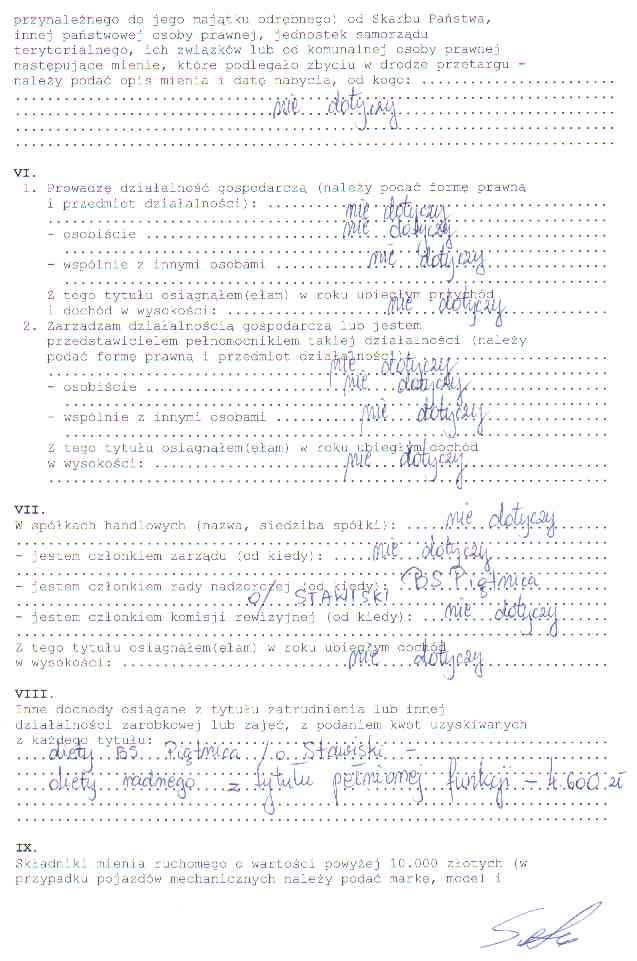 przynależnego do jego majątku odrębnego) od Skarbu Państwa,
innej państwowej osoby prawnej, jednostek samorządu
terytorialnego, ich związków lub od komunalnej osoby prawnej
następujące mienie, które podlegało zbyciu w drodze przetargu -
należy podać opis mienia i datę nabycia, od kogo:
nie dotyczy
VI.
1. Prowadzę działalność gospodarczą (należy podać formę prawną
i przedmiot działalności): nie dotyczy
- osobiście nie dotyczy
- wspólnie z innymi osobami nie dotyczy
Z tego tytułu osiągnąłem(ęłam) w roku ubiegłym przychód
i dochód w wysokości: nie dotyczy
2. Zarządzam działalnością gospodarczą lub jestem
przedstawicielem pełnomocnikiem takiej działalności (należy
podać formę prawną i przedmiot działalności):
nie dotyczy
- osobiście nie dotyczy
- wspólnie z innymi osobami nie dotyczy
Z tego tytułu osiągnąłem(ęłam) w roku ubiegłym dochód
w wysokości: nie dotyczy
VII.
W spółkach handlowych (nazwa, siedziba spółki): nie dotyczy
- jestem członkiem zarządu (od kiedy): nie dotyczy
- jestem członkiem rady nadzorczej (od kiedy): BS Piątnica
o/ STAWISKI
- jestem członkiem komisji rewizyjnej (od kiedy): nie dotyczy
Z tego tytułu osiągnąłem(ęłam) w roku ubiegłym dochód
w wysokości: nie dotyczy
VIII.
Inne dochody osiągane z tytułu zatrudnienia lub innej
działalności zarobkowej lub zajęć, z podaniem kwot uzyskiwanych
z każdego tytułu:
diety BS Piątnica /o Stawiski -
diety radnego z tytułu pełnionej funkcji - 4.600 zł
IX.
Składniki mienia ruchomego o wartości powyżej 10.000 złotych (w
przypadku pojazdów mechanicznych należy podać markę, model i